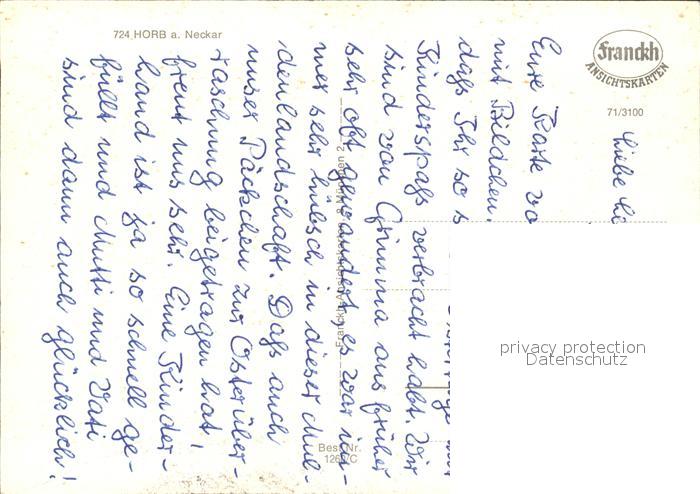 724 HORB a. Neckar
Franckh
ANSICHTSKARTEN
71/3100
Liebe
Eure Karte
mit Bildchen.
dass Ihr so s
Kinderspass verbracht habt. Wir
sind von Grimma aus früher
sehr oft gewandert, es war im-
mer sehr hübsch in dieser Mul-
denlandschaft. Dass auch
unser Päckchen zur Osterüber-
raschung beigetragen hat,
freut uns sehr. Eine Kinder-
hand ist ja so schnell ge-
füllt und Mutti und Vati
sind dann auch glücklich!
Best.Nr.
privacy protection
Datenschutz